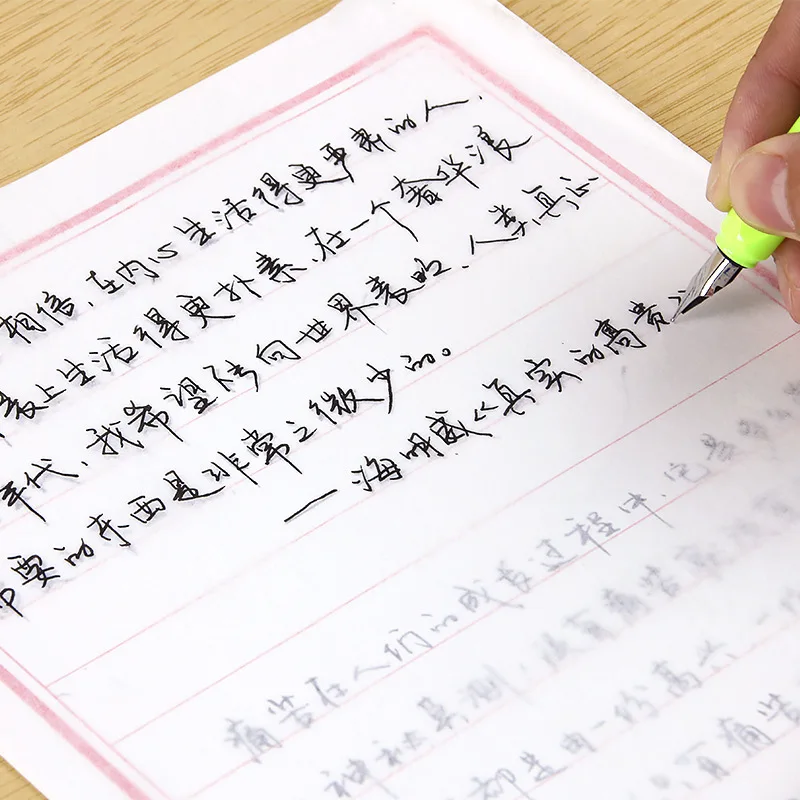 相信,在内心生活得更严肃的人,
表上生活得更朴素,在一个奢华浪
年代,我希望能向世界表明,人类真心
要的东西是非常之微少的。
—海明威《真实的高贵》
痛苦在人们的成长过程中,它是
神秘莫测,没有痛苦
都是由一份高兴,一份
没有痛苦